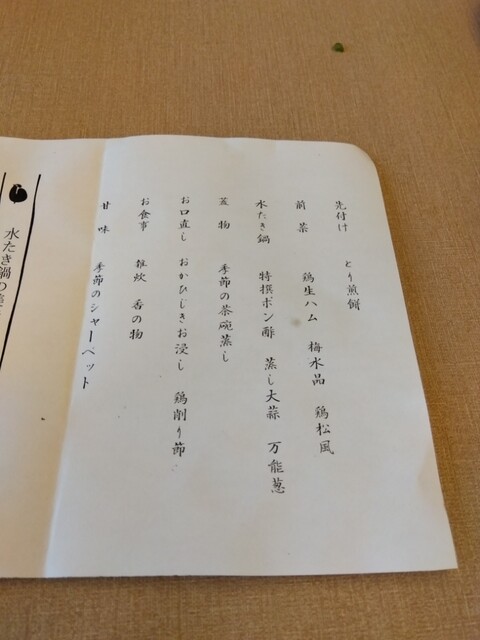 先付け とり煎餅
前菜 鶏生ハム 梅水晶 鶏松風
水たき鍋 特撰ポン酢 蒸し大蒜 万能葱
蓋物 季節の茶碗蒸し
お口直し おかひじきお浸し 鶏削り節
お食事 雑炊 香の物
甘味 季節のシャーベット
水たき鍋の